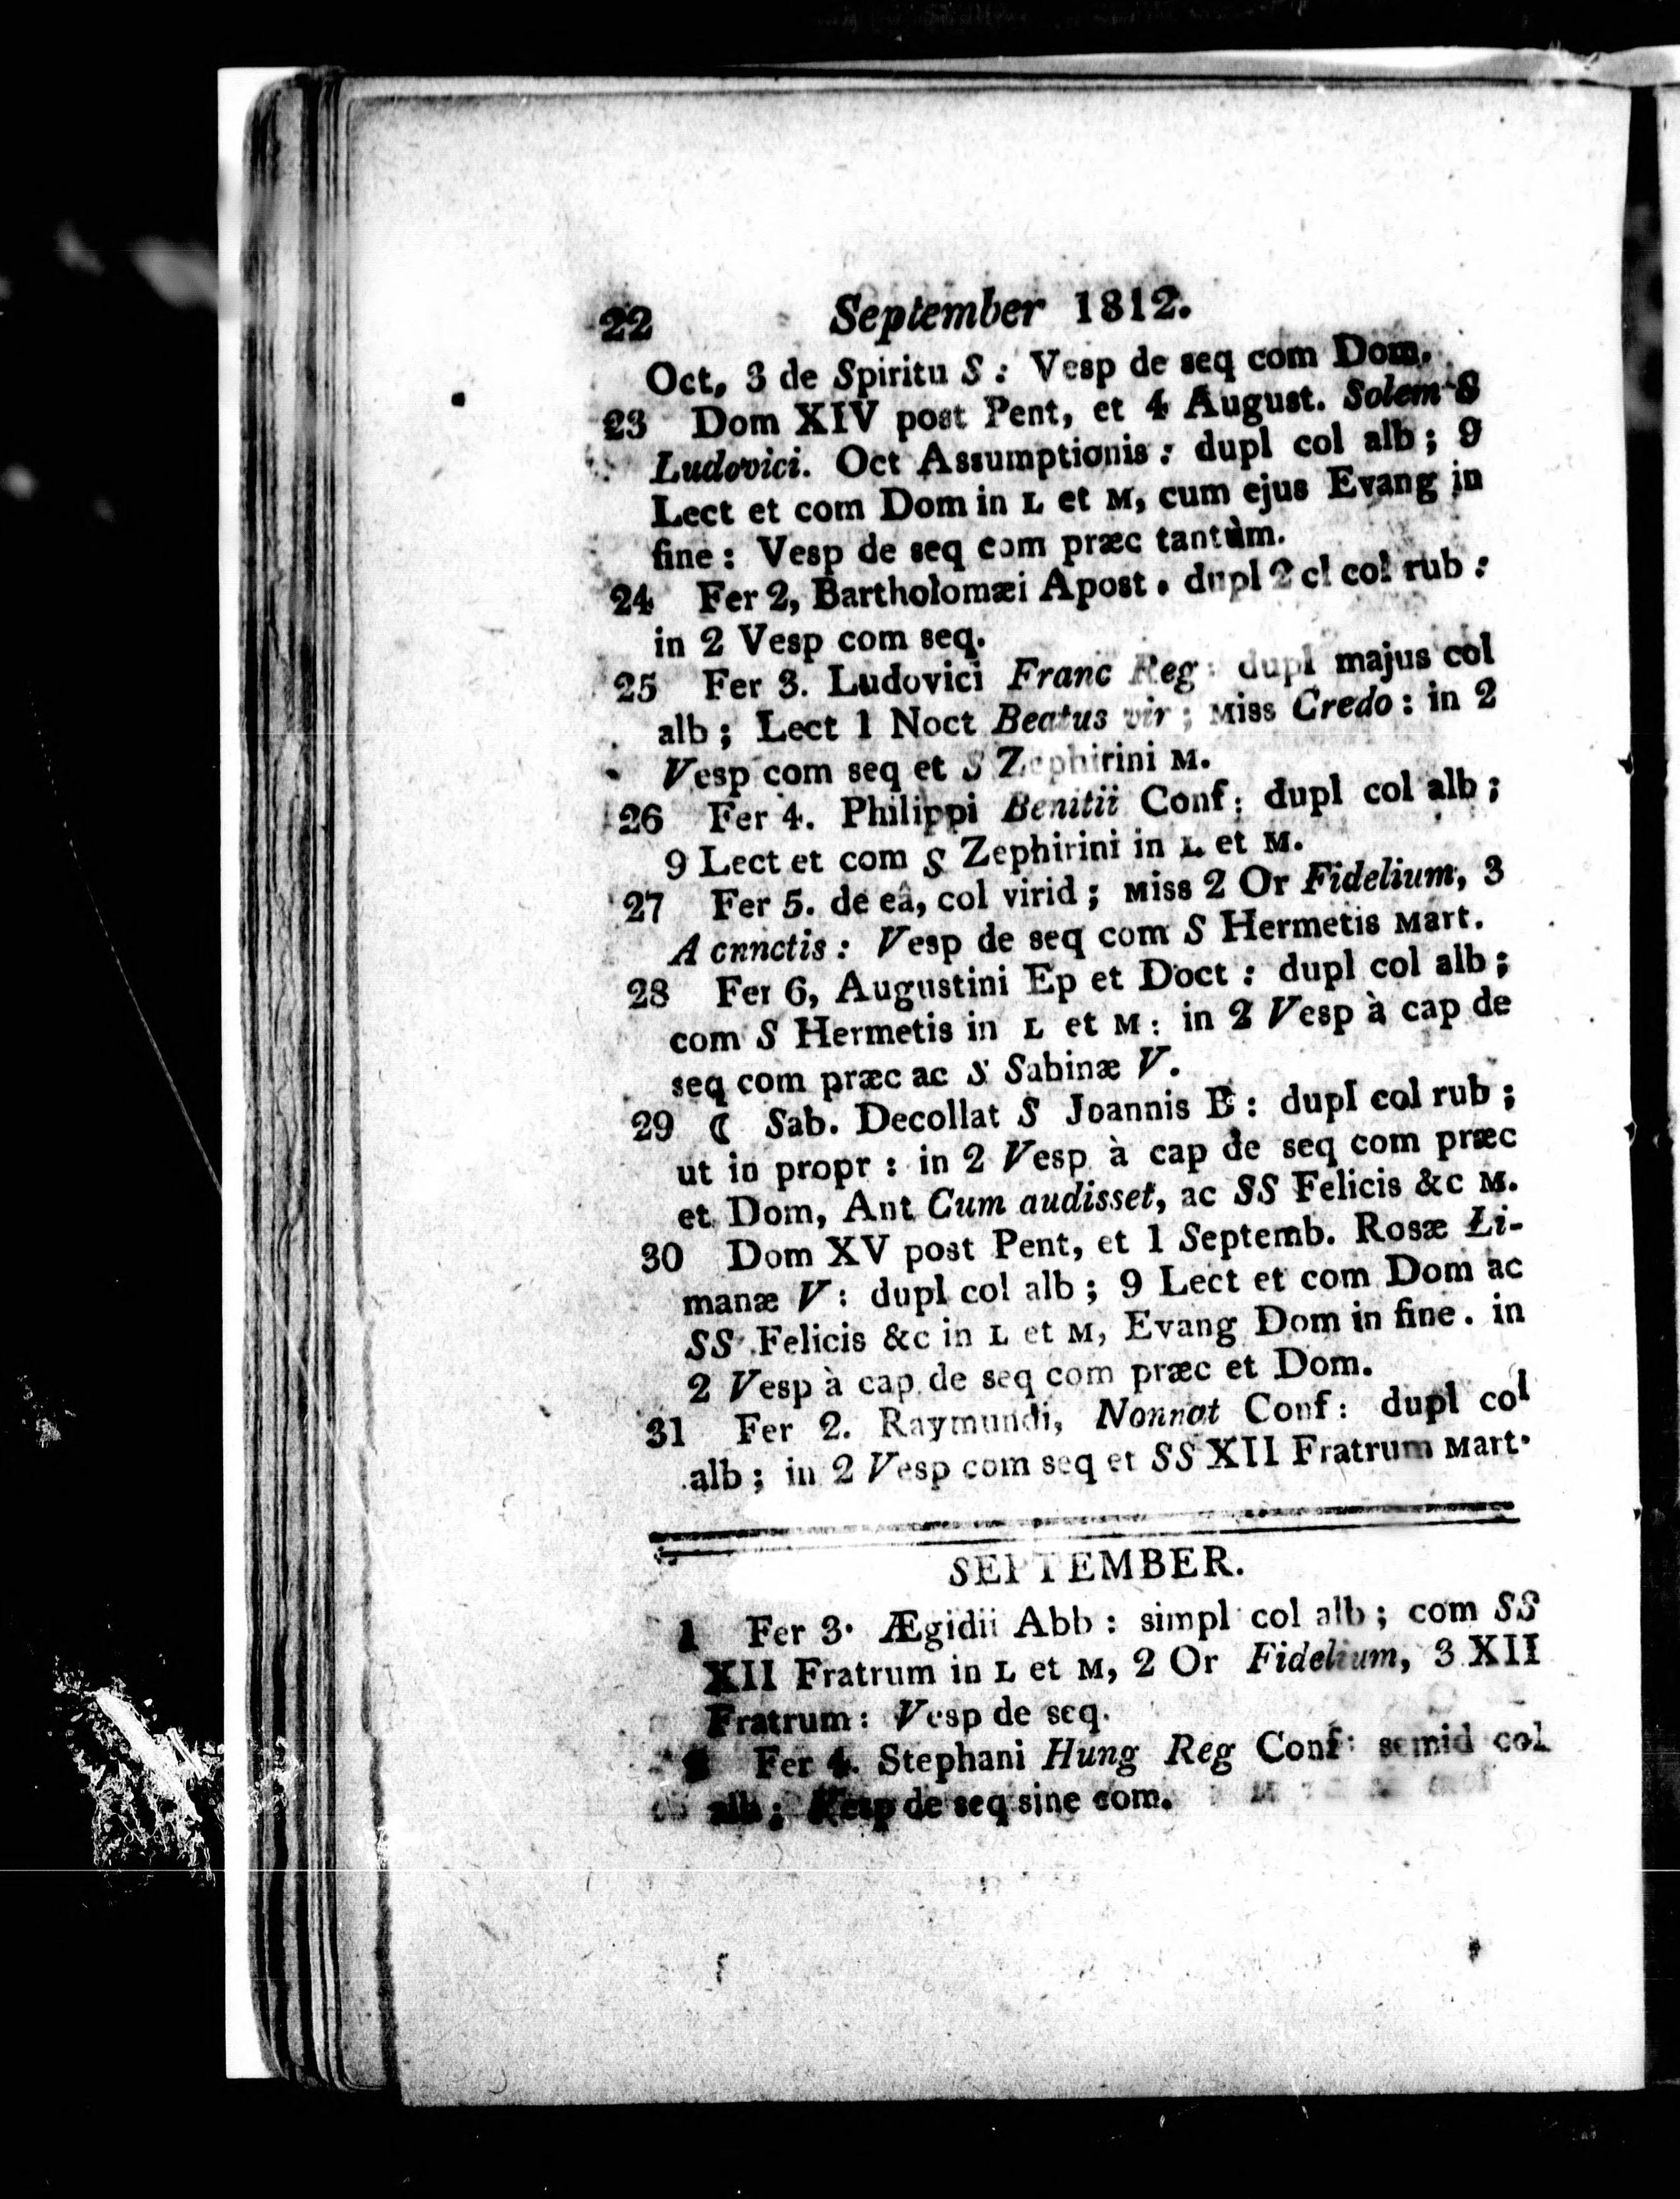 22 September 1812.
Oct, 3 de Spiritu S : Vesp de seq com Dom.
23 Dom XIV post Pent, et 4 August. Solem S
Ludovici. Oct Assumptionis : dupl col alb ; 9
Lect et com Dom in L et M, cum ejus Evang in
fine : Vesp de seq com præc tantùm.
24 Fer 2, Bartholomæi Apost . dupl 2 cl col rub :
in 2 Vesp com seq.
25 Fer 3. Ludovici Franc Reg : dupl majus col
alb ; Lect 1 Noct Beatus vir ; Miss Credo : in 2
Vesp com seq et S Zephirini M.
26 Fer 4. Philippi Benitii Conf : dupl col alb ;
9 Lect et com S Zephirini in L et M.
27 Fer 5. de eâ, col virid ; Miss 2 Or Fidelium, 3
A cnnctis : Vesp de seq com S Hermetis Mart.
28 Fer 6, Augustini Ep et Doct : dupl col alb ;
com S Hermetis in L et M : in 2 Vesp à cap de
seq com præc ac S Sabinæ V.
29 ☾ Sab. Decollat S Joannis B : dupl col rub ;
ut in propr : in 2 Vesp à cap de seq com præc
et Dom, Ant Cum audisset, ac SS Felicis &c M.
30 Dom XV post Pent, et 1 Septemb. Rosæ Li-
manæ V : dupl col alb ; 9 Lect et com Dom ac
SS Felicis &c in L et M, Evang Dom in fine . in
2 Vesp à cap de seq com præc et Dom.
31 Fer 2. Raymundi, Nonnat Conf : dupl col
alb ; in 2 Vesp com seq et SS XII Fratrum Mart.
SEPTEMBER.
1 Fer 3. Ægidii Abb : simpl col alb ; com SS
XII Fratrum in L et M, 2 Or Fidelium, 3 XII
Fratrum : Vesp de seq.
2 Fer 4. Stephani Hung Reg Conf : semid col
alb ; Vesp de seq sine com.